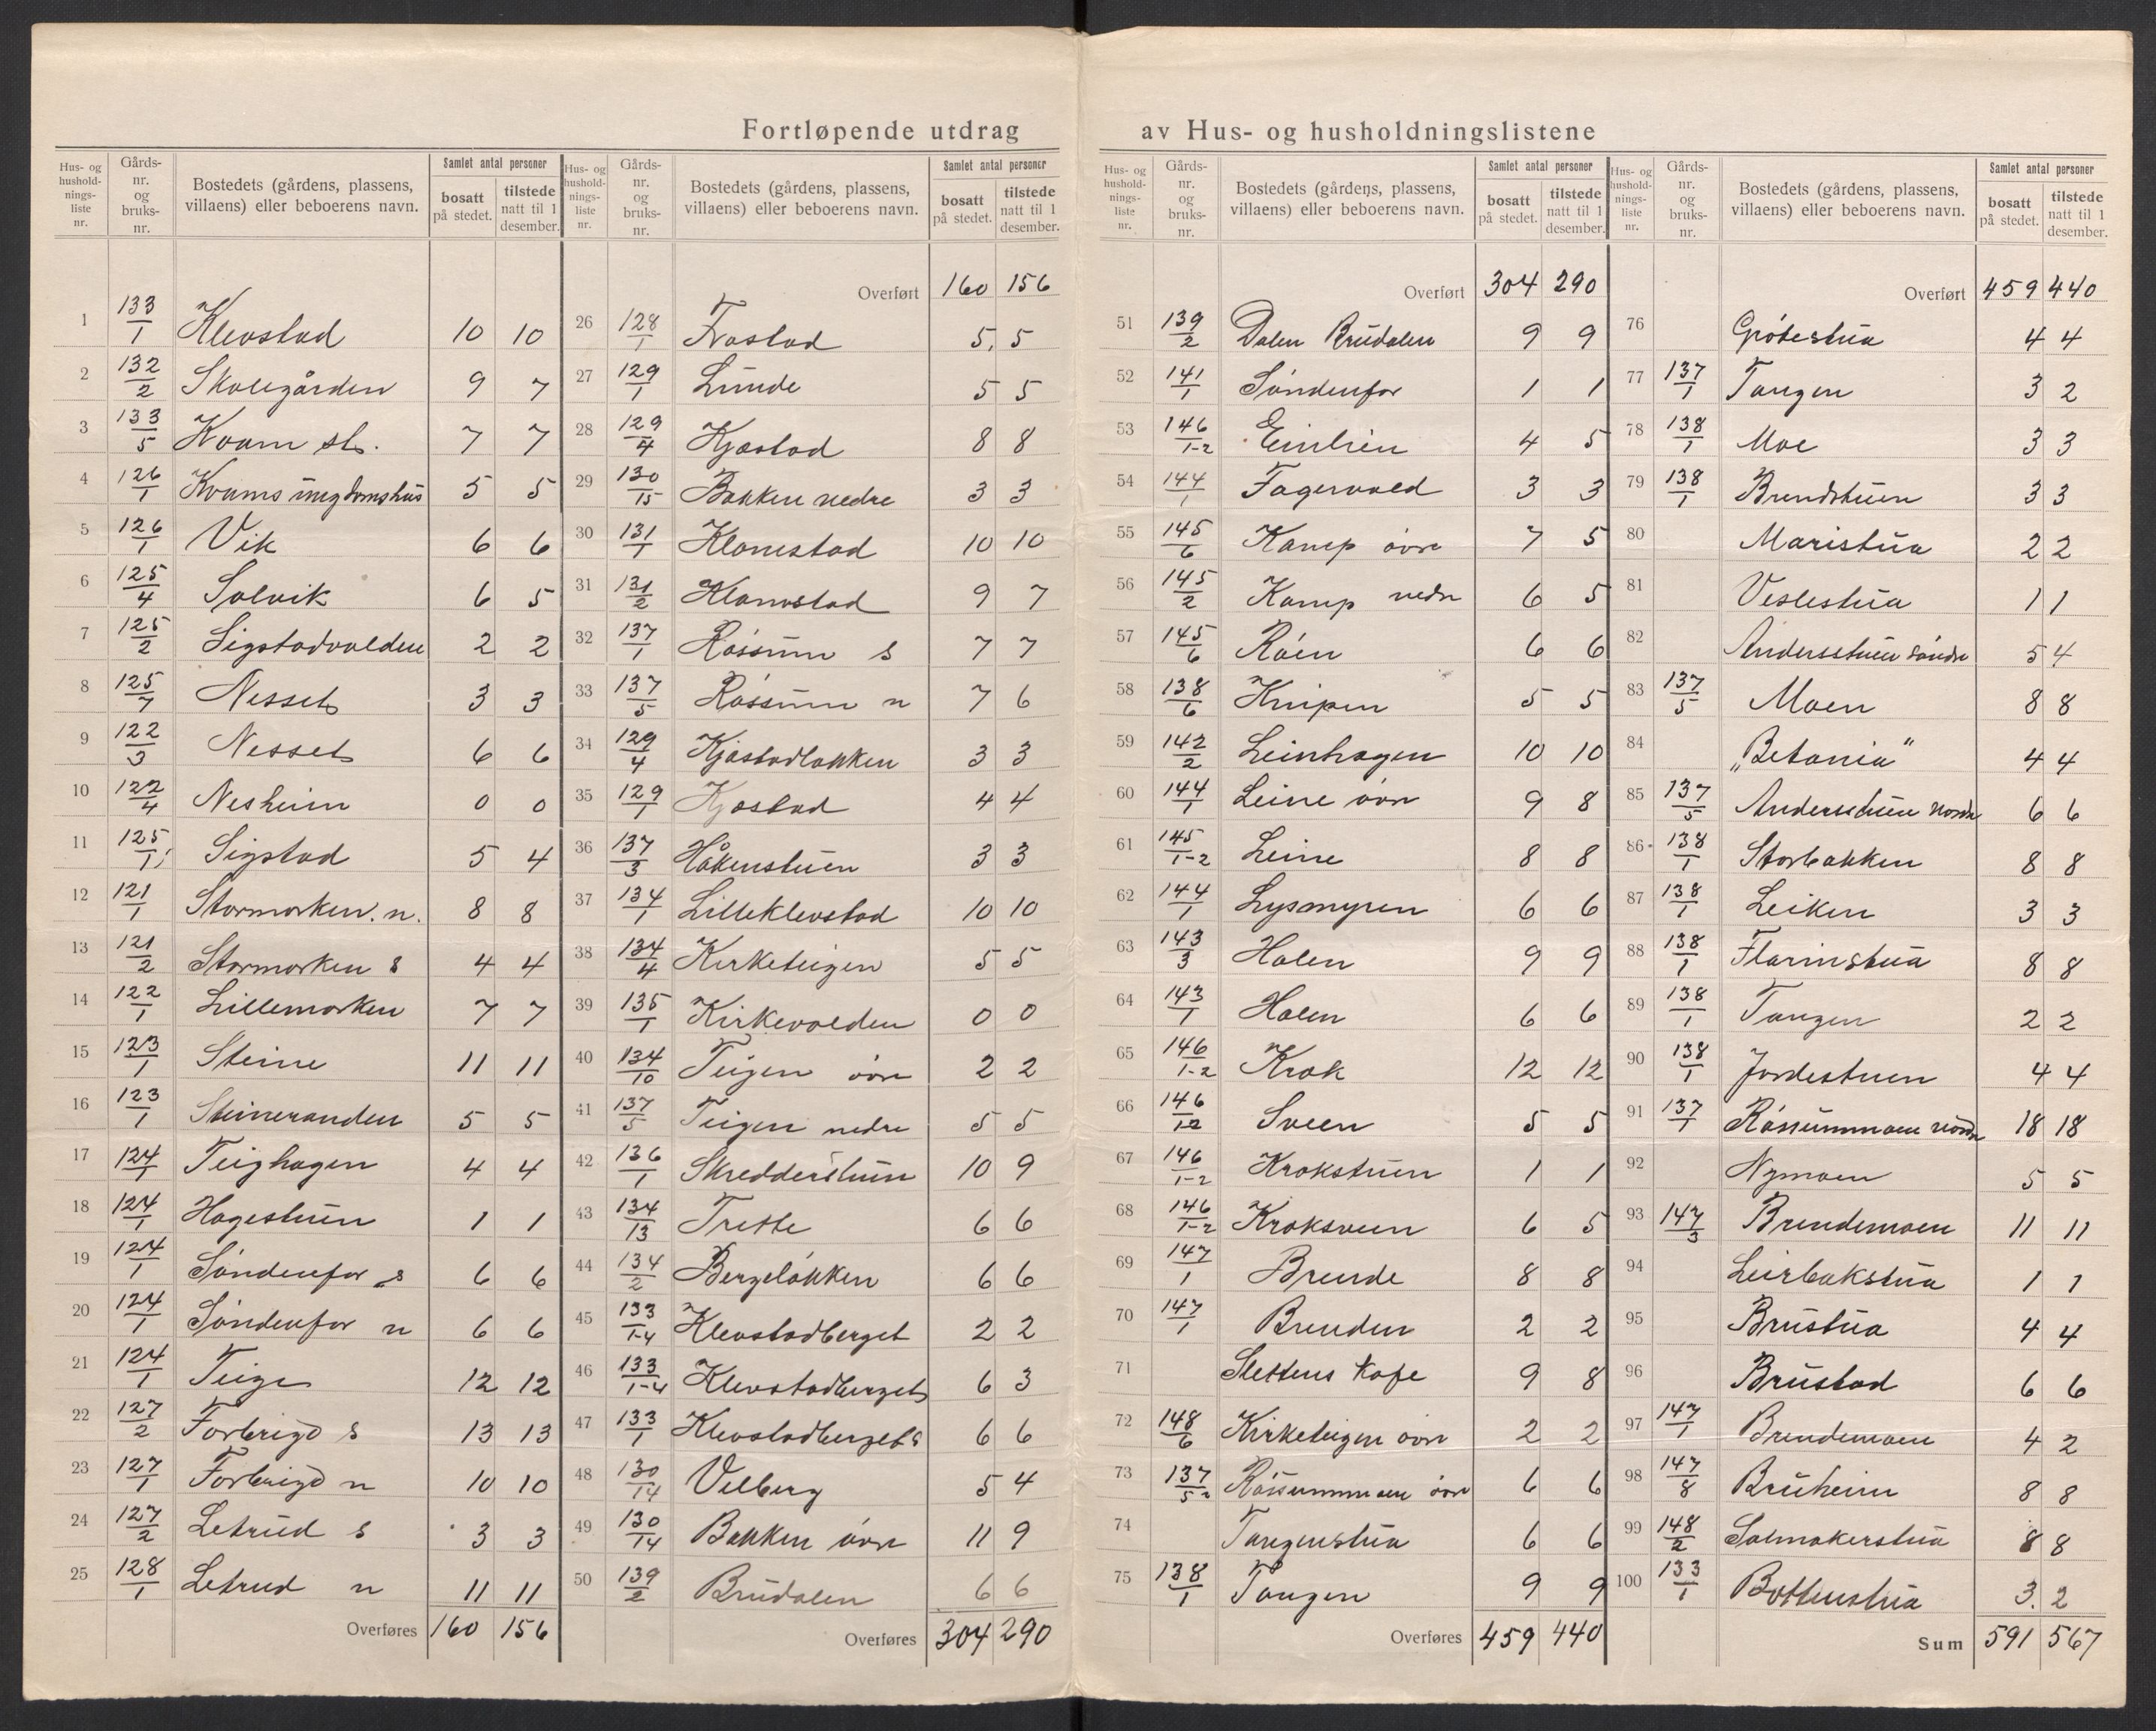 Fortløpende utdrag av Hus- og husholdningslistene
Hus- og husholdnings-liste nr. | Gårds-nr. og bruks-nr. | Bostedets (gårdens, plassens, villaens) eller beboerens navn. | Samlet antal personer | bosatt på stedet. | tilstede natt til 1 desember.
1 133/1 Klevstad 10 10
2 132/2 Skolegården 9 7
3 133/5 Kvam st. 7 7
4 126/1 Kvams ungdomshus 5 5
5 126/1 Vik 6 6
6 125/4 Solvik 6 5
7 125/2 Sigstadvolden 2 2
8 125/7 Nesset 3 3
9 122/3 Nesset 6 6
10 122/4 Nesheim 0 0
11 125/1 Sigstad 5 4
12 121/1 Stormorken n. 8 8
13 121/2 Stormorken s 4 4
14 122/1 Lillemorken 7 7
15 123/1 Steine 11 11
16 123/1 Steineranden 5 5
17 124/1 Teighagen 4 4
18 124/1 Hagestuen 1 1
19 124/1 Søndenfor s 6 6
20 124/1 Søndenfor n 6 6
21 124/1 Teige 12 12
22 127/2 Forbrigd s 13 13
23 127/1 Forbrigd n 10 10
24 127/2 Letrud s 3 3
25 128/1 Letrud n 11 11
Overføres 160 156
Hus- og husholdnings-liste nr. | Gårds-nr. og bruks-nr. | Bostedets (gårdens, plassens, villaens) eller beboerens navn. | Samlet antal personer | bosatt på stedet. | tilstede natt til 1 desember.
Overført 160 156
26 128/1 Frostad 5 5
27 129/1 Lunde 5 5
28 129/4 Kjøstad 8 8
29 130/15 Bakken nedre 3 3
30 131/1 Klomstad 10 10
31 131/2 Klomstad 9 7
32 137/1 Røssum s 7 7
33 137/5 Røssum n 7 6
34 129/4 Kjøstadbakken 3 3
35 129/1 Kjøstad 4 4
36 137/3 Håkenstuen 3 3
37 134/1 Lilleklevstad 10 10
38 134/4 Kirketeigen 5 5
39 135/1 Kirkevolden 0 0
40 134/10 Teigen øvre 2 2
41 137/5 Teigen nedre 5 5
42 136/1 Skredderstuen 10 9
43 134/13 Trette 6 6
44 134/2 Bergeløkken 6 6
45 133/1-4 Klevstadberget 2 2
46 133/1-4 Klevstadberget 6 3
47 133/1 Klevstadberget s 6 6
48 130/14 Velberg 5 4
49 130/14 Bakken øvre 11 9
50 139/2 Brudalen 6 6
Overføres 304 290
Hus- og husholdnings-liste nr. | Gårds-nr. og bruks-nr. | Bostedets (gårdens, plassens, villaens) eller beboerens navn. | Samlet antal personer | bosatt på stedet. | tilstede natt til 1 desember.
Overført 304 290
51 139/2 Dalen Brudalen 9 9
52 141/1 Søndenfor 1 1
53 146/1-2 Einlien 4 5
54 144/1 Fagervold 3 3
55 145/6 Kamp øvre 7 5
56 145/2 Kamp nedr 6 5
57 145/6 Røen 6 6
58 138/6 Knipen 5 5
59 142/2 Leinhagen 10 10
60 144/1 Leine øvre 9 8
61 145/1-2 Leine 8 8
62 144/1 Lysmyren 6 6
63 143/3 Holen 9 9
64 143/1 Holen 6 6
65 146/1-2 Krok 12 12
66 146/1-2 Sveen 5 5
67 146/1-2 Krokstuen 1 1
68 146/1-2 Kroksveen 6 5
69 147/1 Brende 8 8
70 147/1 Brenden 2 2
71 Slettens Kafe 9 8
72 148/6 Kirketeigen øvre 2 2
73 137/5 Røssummoen øvre 6 6
74 Tangenstua 6 6
75 138/1 Tangen 9 9
Overføres 459 440
Hus- og husholdnings-liste nr. | Gårds-nr. og bruks-nr. | Bostedets (gårdens, plassens, villaens) eller beboerens navn. | Samlet antal personer | bosatt på stedet. | tilstede natt til 1 desember.
Overført 459 440
76 Grøtestua 4 4
77 137/1 Tangen 3 2
78 138/1 Moe 3 3
79 138/1 Brendstuen 3 3
80 Maristua 2 2
81 Veslestua 1 1
82 Andersstuen søndre 5 4
83 137/5 Moen 8 8
84 „Betania" 4 4
85 137/5 Andersstuen nordre 6 6
86 138/1 Storbakken 8 8
87 138/1 Leiken 3 3
88 138/1 Flarinstua 8 8
89 138/1 Tangen 2 2
90 138/1 Jordestuen 4 4
91 137/1 Røssummoen nordre 18 18
92 Nymoen 5 5
93 147/3 Brendemoen 11 11
94 Leirbakstua 1 1
95 Brustua 4 4
96 Brustad 6 6
97 147/1 Brendemoen 4 2
98 147/8 Bruheim 8 8
99 148/2 Salmakerstua 8 8
100 133/1 Bottenstua 3 2
Sum 591 567